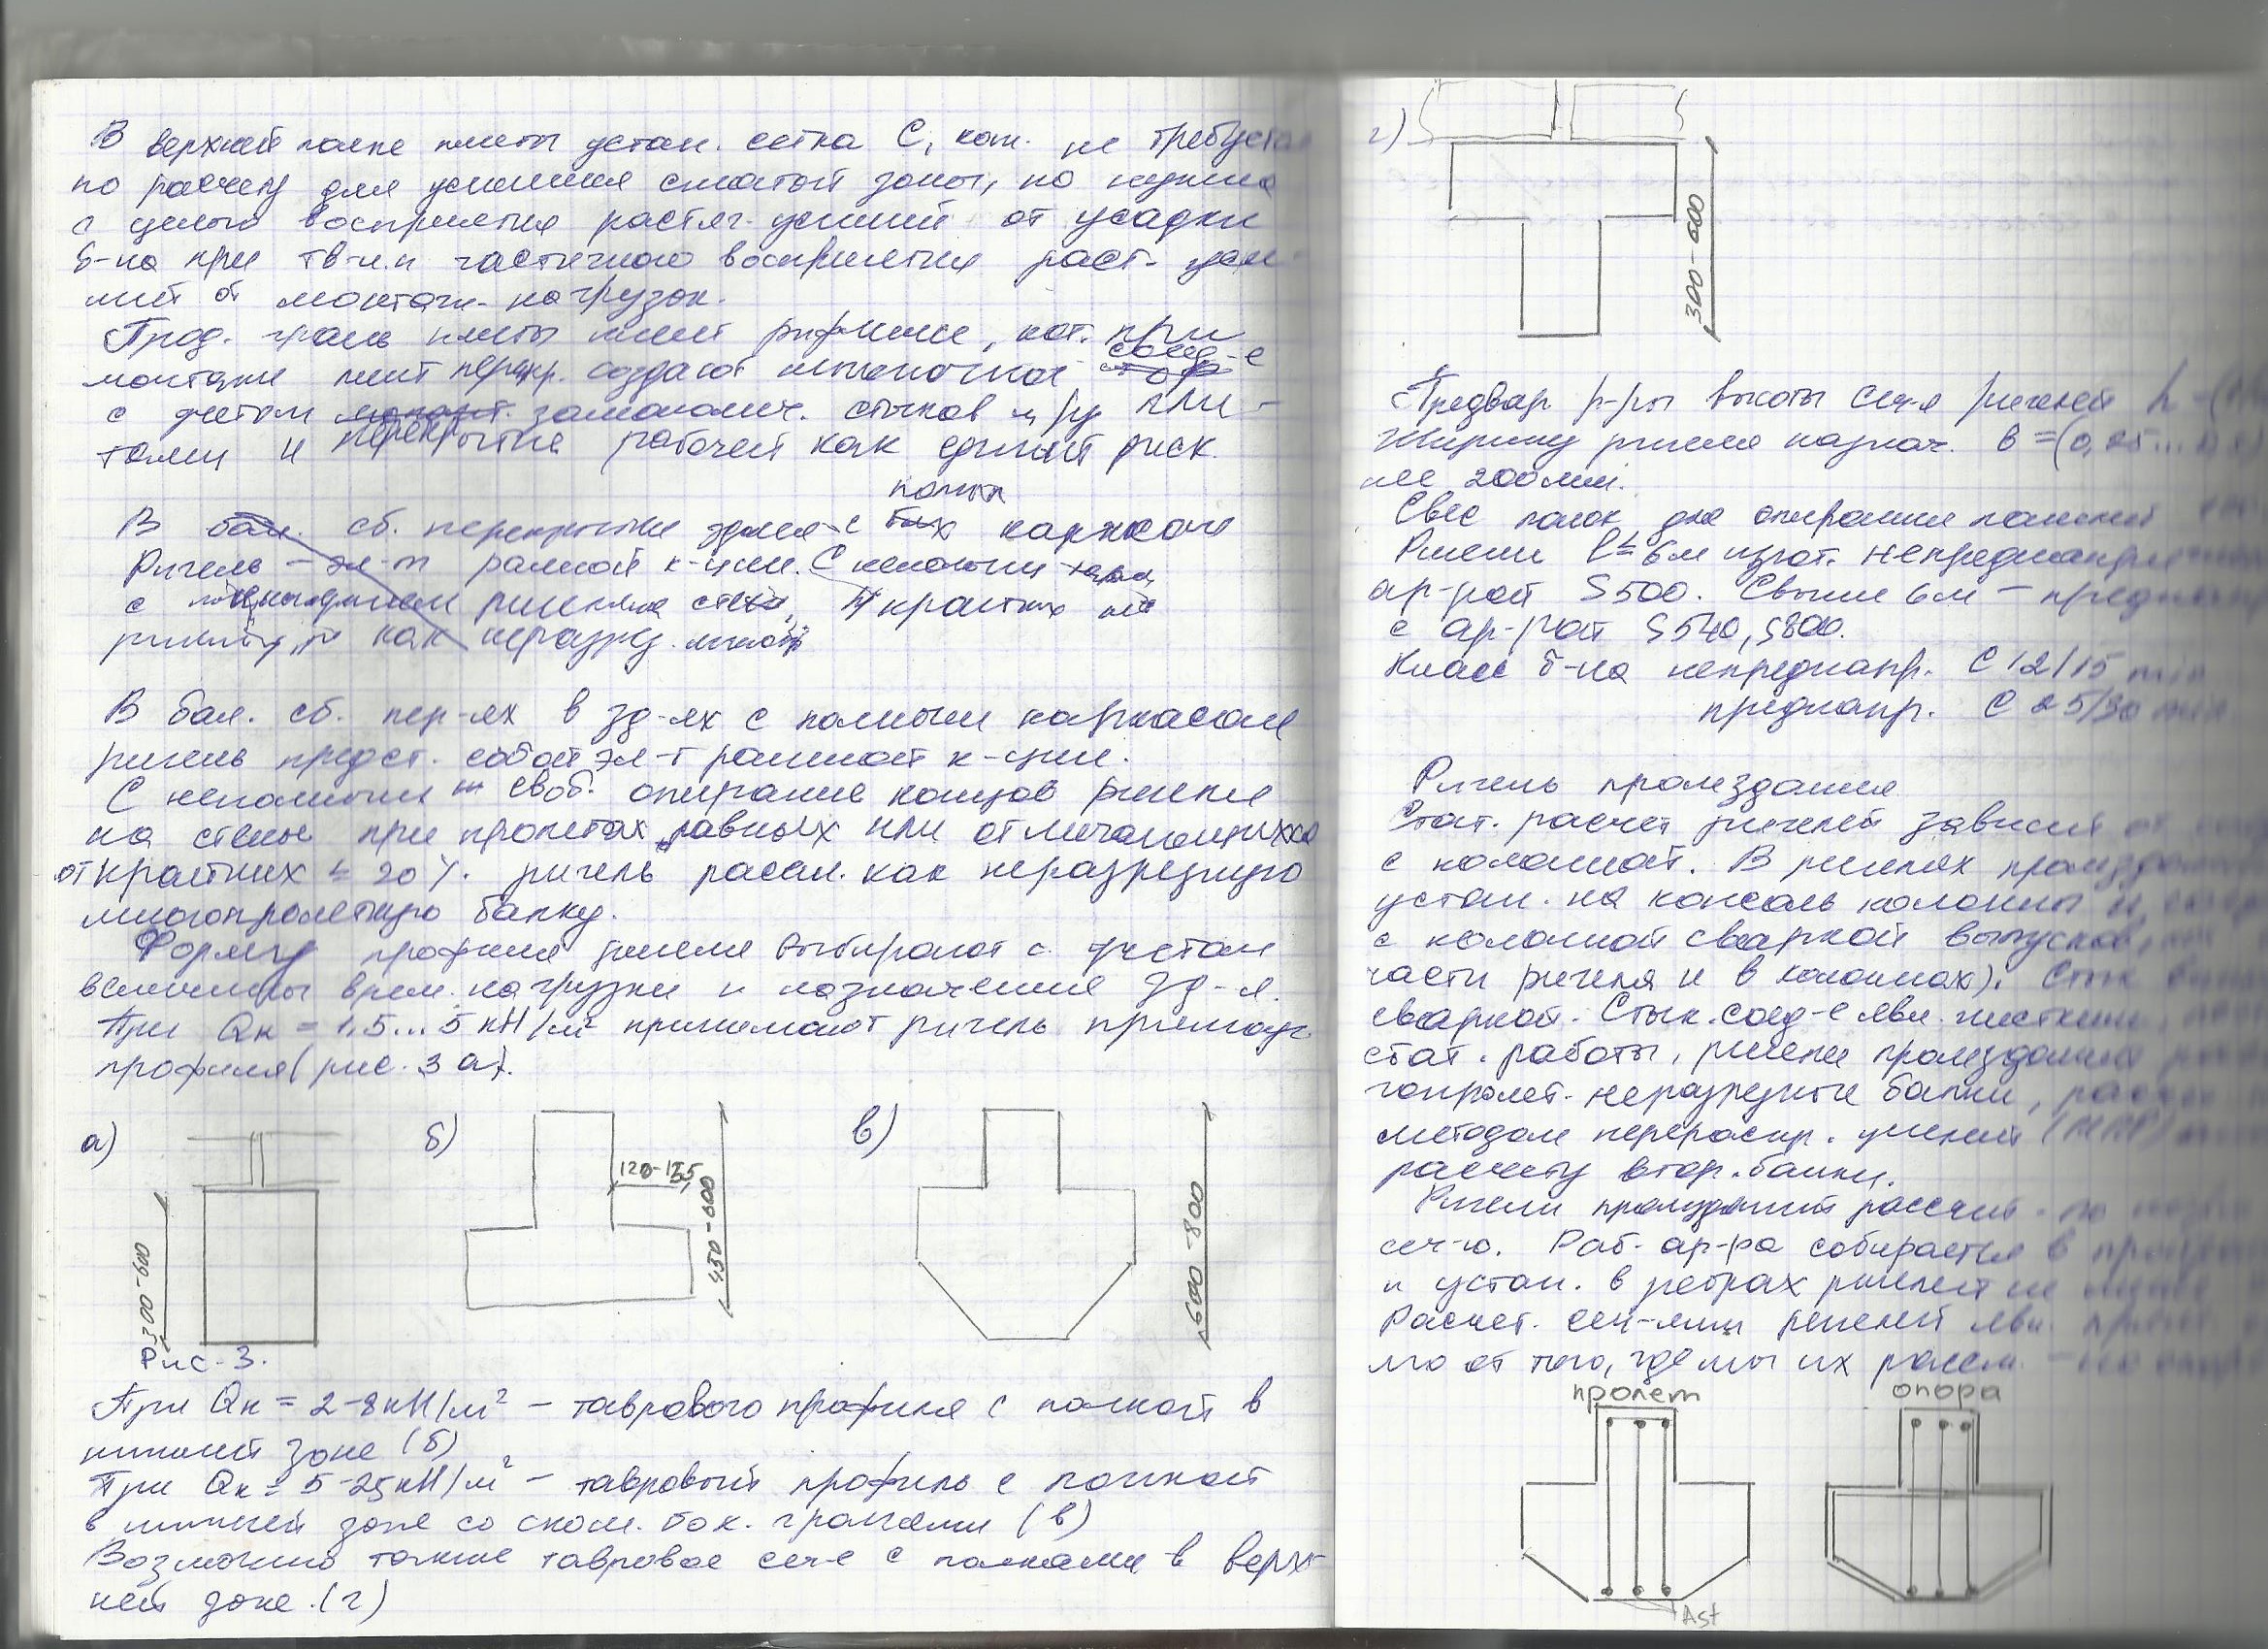 В верхней полке плиты устан. сетка С, кот. не требуется
по расчету для усиления сжатой зоны, но нужна
с целью восприятия растяг. усилий от усадки
б-на при тв-и.и частичного восприятия раст. уси-
лий от монтажн. нагрузок.
Прод. грань плиты имеет рифление, кот. при
монтаже плит перекр. создают шпоночное соед-е
с учетом замонолич. стыков м/у пли-
тами и перекрытие работает как единый диск.
полн
В сб. перекрытие здания с каркасом
Ригель – эл-т рамной к-ции. С неполным
с ригеля на стены, крайних
ригель, как неразрез.
В бал. сб. пер-ях в зд-ях с полным каркасом
ригель предст. собой эл-т рамной к-ции.
С неполным и своб. опирание концов ригеля
на стены при пролетах равных или отличающихся
от крайних ≤ 20%. ригель рассм. как неразрезную
многопролетную балку.
Форму профиля ригеля выбирают с учетом
величины врем. нагрузки и назначение зд-я.
При Qк = 1,5...5 кН/м² принимают ригель прямоуг
профиля (рис. 3 а).
а)
б)
в)
300-600
120-155
450-600
600-800
Рис-3.
При Qк = 2-8кН/м² – таврового профиля с полкой в
нижней зоне (б)
При Qк = 5-25кН/м² – тавровый профиль с полкой
в нижней зоне со скош. бок. гранями (в)
Возможно также тавровое сеч-е с полками в верх-
ней зоне. (г)
г)
300-600
Предвар р-ры высоты сеч-я ригелей h
Ширину ригеля назнач. в =(0,25...
нее 200мм.
Свес полок для опирания панелей
Ригели l ≤ 6м изгот. непреднапря
ар-рой S500. Свыше 6м – преднапр
с ар-рой S540, S800.
Класс б-на непреднапр. С 12/15 min
преднапр. С 25/30 min
Ригель промздания
Стат. расчет ригелей зависит от
с колонной. В ригелях промзда
устан. на консоль колонны и
с колонной сваркой выпусков,
части ригеля и в колоннах). Стык
сваркой. Стык. соед-е явл. жестким
стат. работы, ригели промздания
гопролет. неразрезные балки,
методом перераспр. усилий
расчету втор. балки.
Ригели промзданий рассчит. по
сеч-ю. Раб. ар-ра собирается в
и устан. в ребрах ригелей не
Расчет. сеч-ями ригелей явл.
мо от того, где мы их рассм.
пролет
опора
Ast